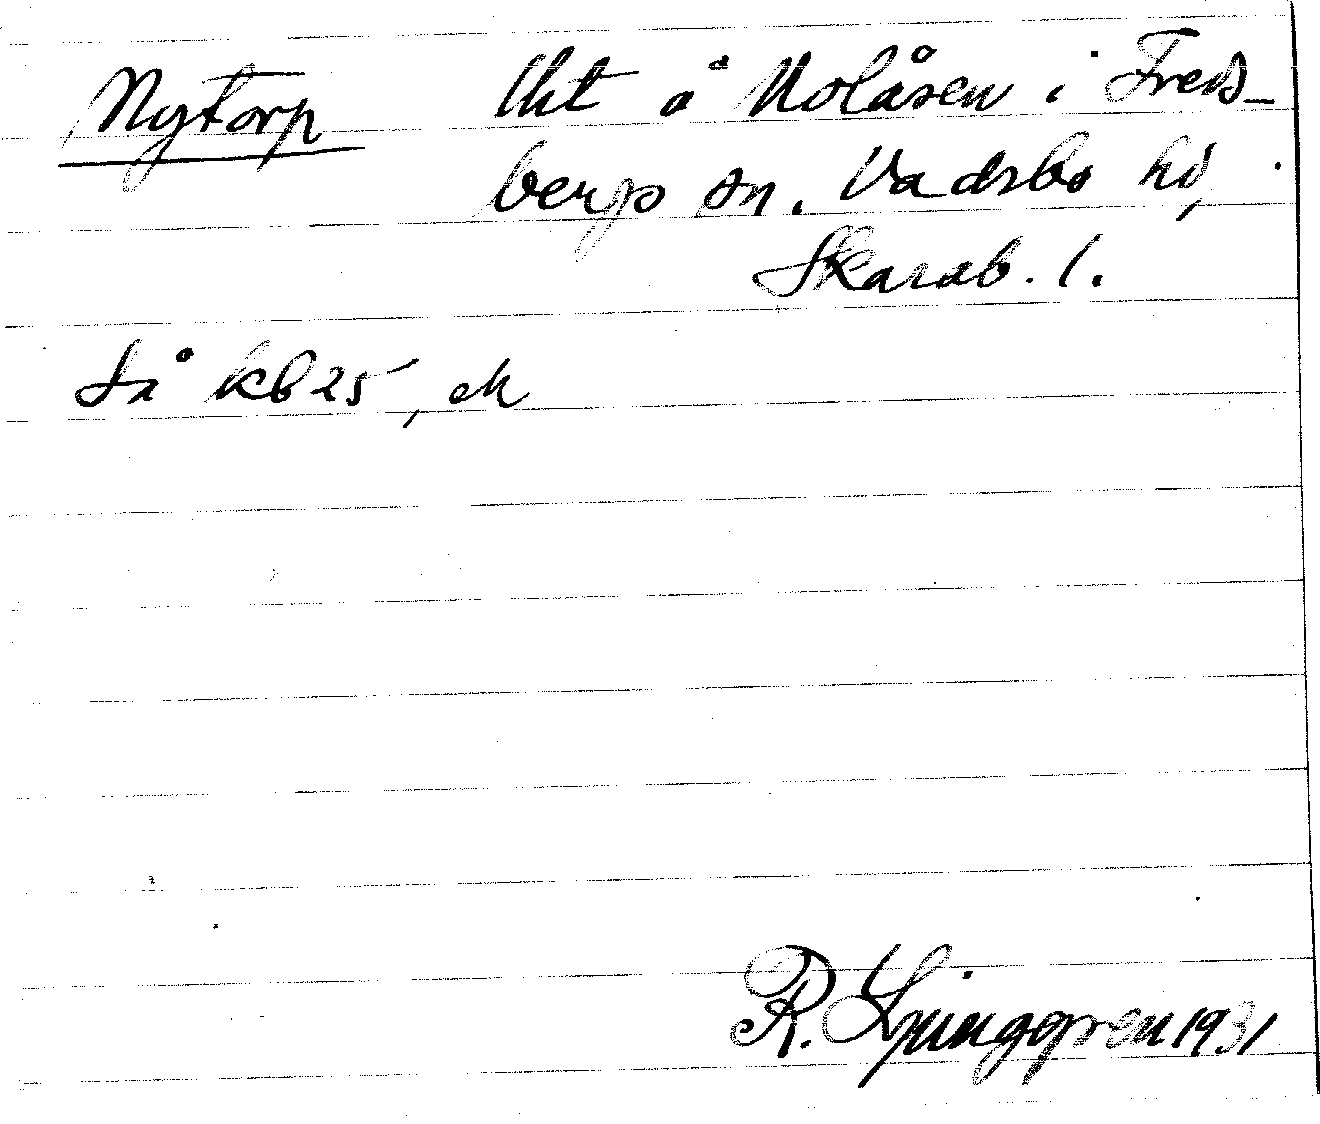 Nytorp Uht å Nolåsen i Freds-
bergs sn. Vadsbo hd,
Skarab. l.
Så kb 25, ek
R. Ljunggren 1931